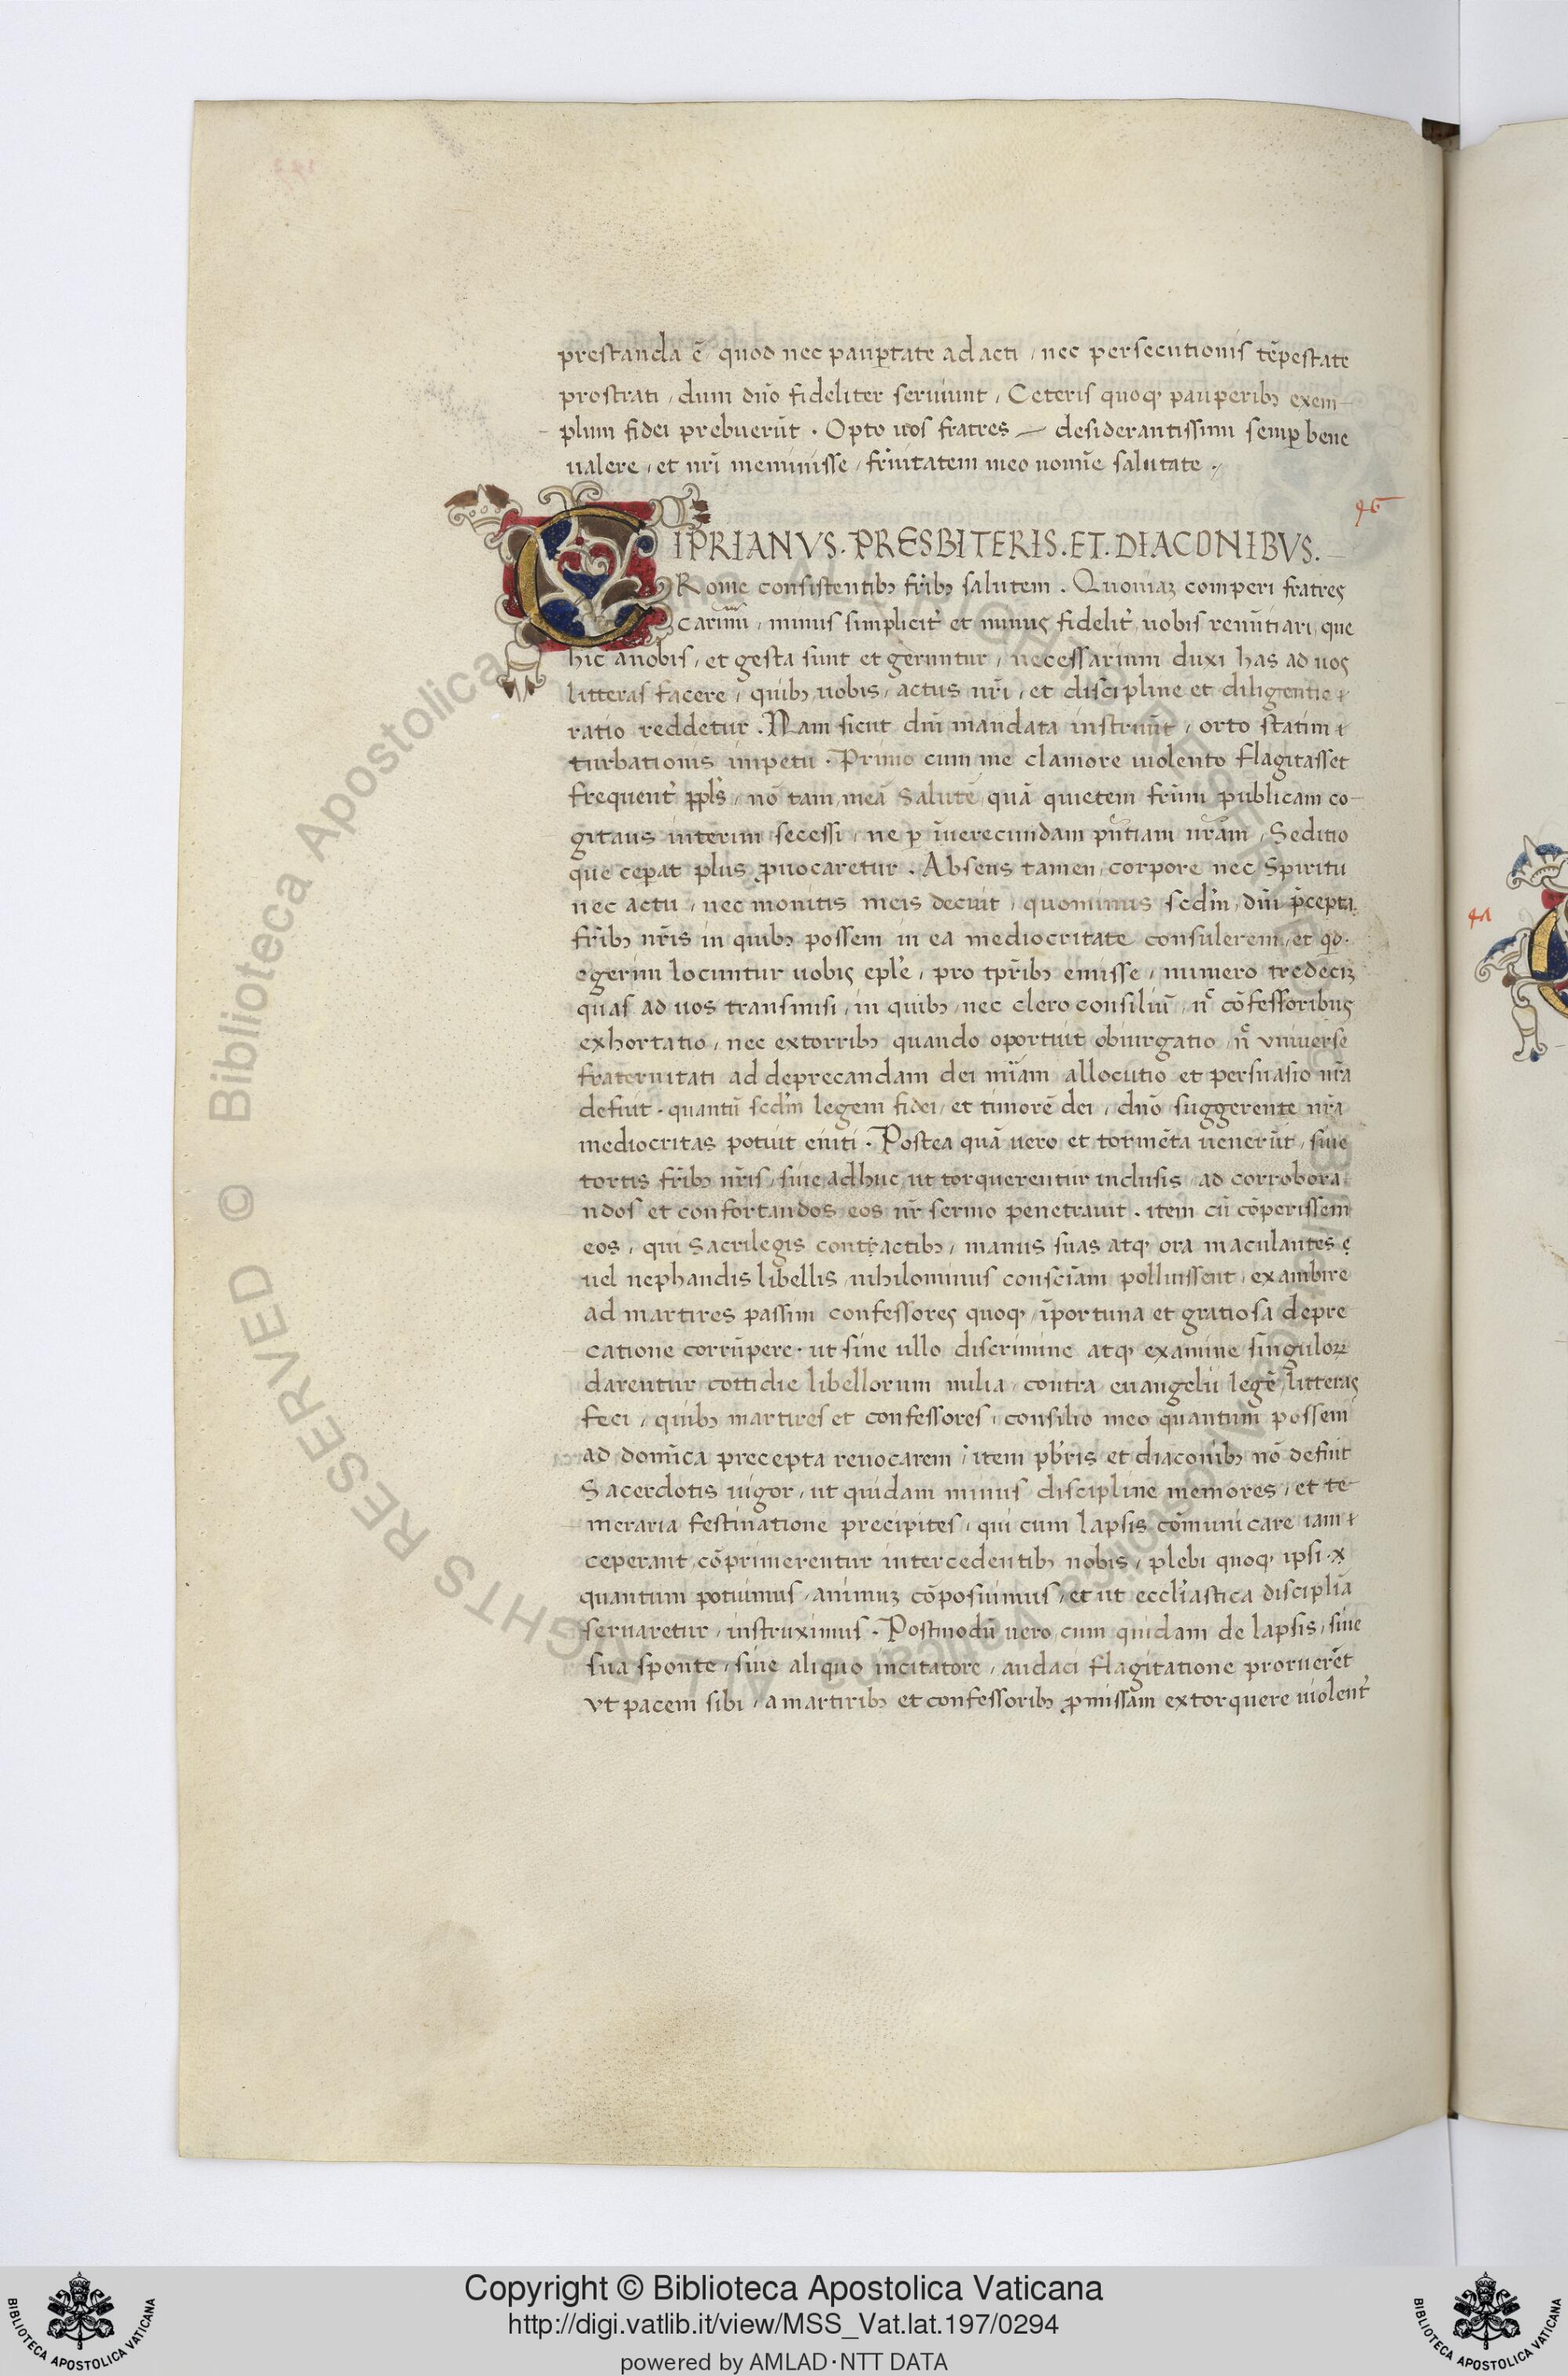 prestanda ē, quod nec paup̱tate adacti, nec persecutionis tēpestate
prostrati, dum dn̄o fideliter seruiunt, Ceteris quoq; pauperibꝫ exem–
plum fidei prebuerūt. Opto uos fratres — desiderantissimi semꝑ bene
ualere, et nr̄i meminisse, fr̄nitatem meo nomīe salutate.
46
CIPRIANVS. PRESBITERIS. ET. DIACONIBVS.
Rome consistentibꝫ fr̄ibꝫ salutem. Quoniaꝫ comperi fratres
carim̄i, minus simplicit᷑ et minus fidelit᷑ uobis renūtiari, que
hic anobis, et gesta sunt et geruntur, necessarium duxi has ad uos
litteras facere, quibꝫ uobis, actus nr̄i, et discipline et diligentie
ratio reddetur. Nam sicut dn̄i mandata instruūt, orto statim
turbationis impetu. Primo cum me clamore uiolento flagitasset
frequent᷑ ppl̄s, nō tam meā Salutē quā quietem fr̄um publicam co–
gitans interim secessi, ne ꝑ īuerecundam pn̄tiam nr̄am, Seditio
que ceperat plus ꝓuocaretur. Absens tamen corpore nec Spiritu
nec actu, nec monitis meis defuit, quominus scd̄m dn̄i p̄cepta
fr̄ibꝫ nr̄is in quibꝫ possem in ea mediocritate consulerem, et qd.
egerim locuntur uobis epl̄e, pro tpr̄ibꝫ emisse, numero tredeciꝫ
quas ad uos transmisi, in quibꝫ nec clero consiliū, nc̄ cōfessoribus
exhortatio, nec extorribꝫ quando oportuit obiurgatio, nc̄ vniuerse
fraternitati ad deprecandam dei mīam allocutio et persuasio nr̄a
defuit. quantū scd̄m legem fidei, et timorē dei, dn̄o suggerente nr̄a
mediocritas potuit eniti. Postea quā uero et tormēta uenerūt, siue
tortis fr̄ibꝫ nr̄is, siue adhuc ut torquerentur inclusis, ad corrobora
ndos et confortandos eos nr̄ sermo penetrauit. item cū cōperissem
eos, qui Sacrilegis contractibꝫ, manus suas atq; ora maculantes
uel nephandis libellis, nihilominus consciāni polluissent, exambire
ad martires passim confessores quoq; īportuna et gratiosa depre
catione corrūpere. ut sine ullo discrimine atq; examine singuloꝝ
darentur cottidie libellorum milia, contra euangelii legē, litteras
feci, quibꝫ martires et confessores, consilio meo quantum possem
ad domīca precepta reuocarem, item pbr̄is et diaconibꝫ nō defuit
Sacerdotis uigor, ut quidam minus discipline memores, et te
meraria festinatione precipites, qui cum lapsis cōmunicare iam
ceperant, cōprimerentur intercedentibꝫ nobis, plebi quoq; ipsi
quantum potuimus, animuꝫ cōposuimus, et ut eccl̄iastica disciplīa
seruaretur, instruximus. Postmodū uero cum quidam de lapsis, siue
sua sponte, siue aliquo incitatore, audaci flagitatione prorueret
vt pacem sibi, a martiribꝫ et confessoribꝫ ꝓmissam extorquere uiolent᷑
Copyright © Biblioteca Apostolica Vaticana
http://digi.vatlib.it/view/MSS_Vat.lat.197/0294
powered by AMLAD·NTT DATA
BIBLIOTECA APOSTOLICA VATICANA
BIBLIOTECA APOSTOLICA VATICANA